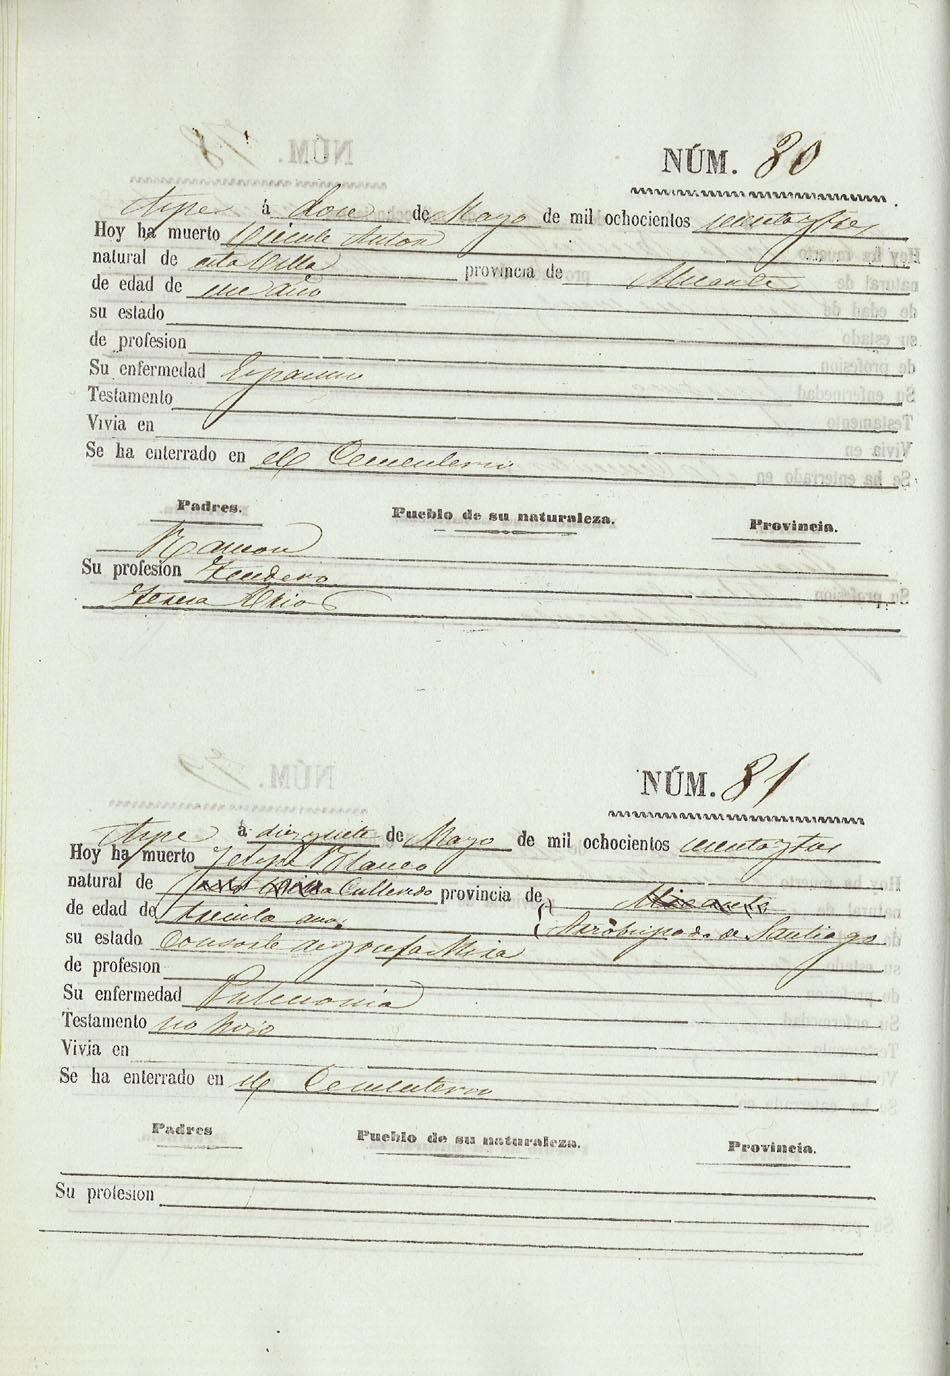 NÚM. 80
Aspe á doce de Mayo de mil ochocientos
Hoy ha muerto Vicente Anton
natural de esta Villa provincia de Alicante
de edad de un año
su estado
de profesion
Su enfermedad Espasmo
Testamento
Vivia en
Se ha enterrado en el Cementerio
Padres. Pueblo de su naturaleza. Provincia.
Ramon
Su profesion Tendero
Teresa
NÚM. 81
Aspe á diez y siete de Mayo de mil ochocientos
Hoy ha muerto Felipe Blanco
natural de Cullendo provincia de Alicante
de edad de treinta años Arzobispado de Santiago
su estado Consorte de Josefa Mira
de profesion
Su enfermedad Pulmonia
Testamento no hizo
Vivia en
Se ha enterrado en el Cementerio
Padres Pueblo de su naturaleza. Provincia.
Su profesion